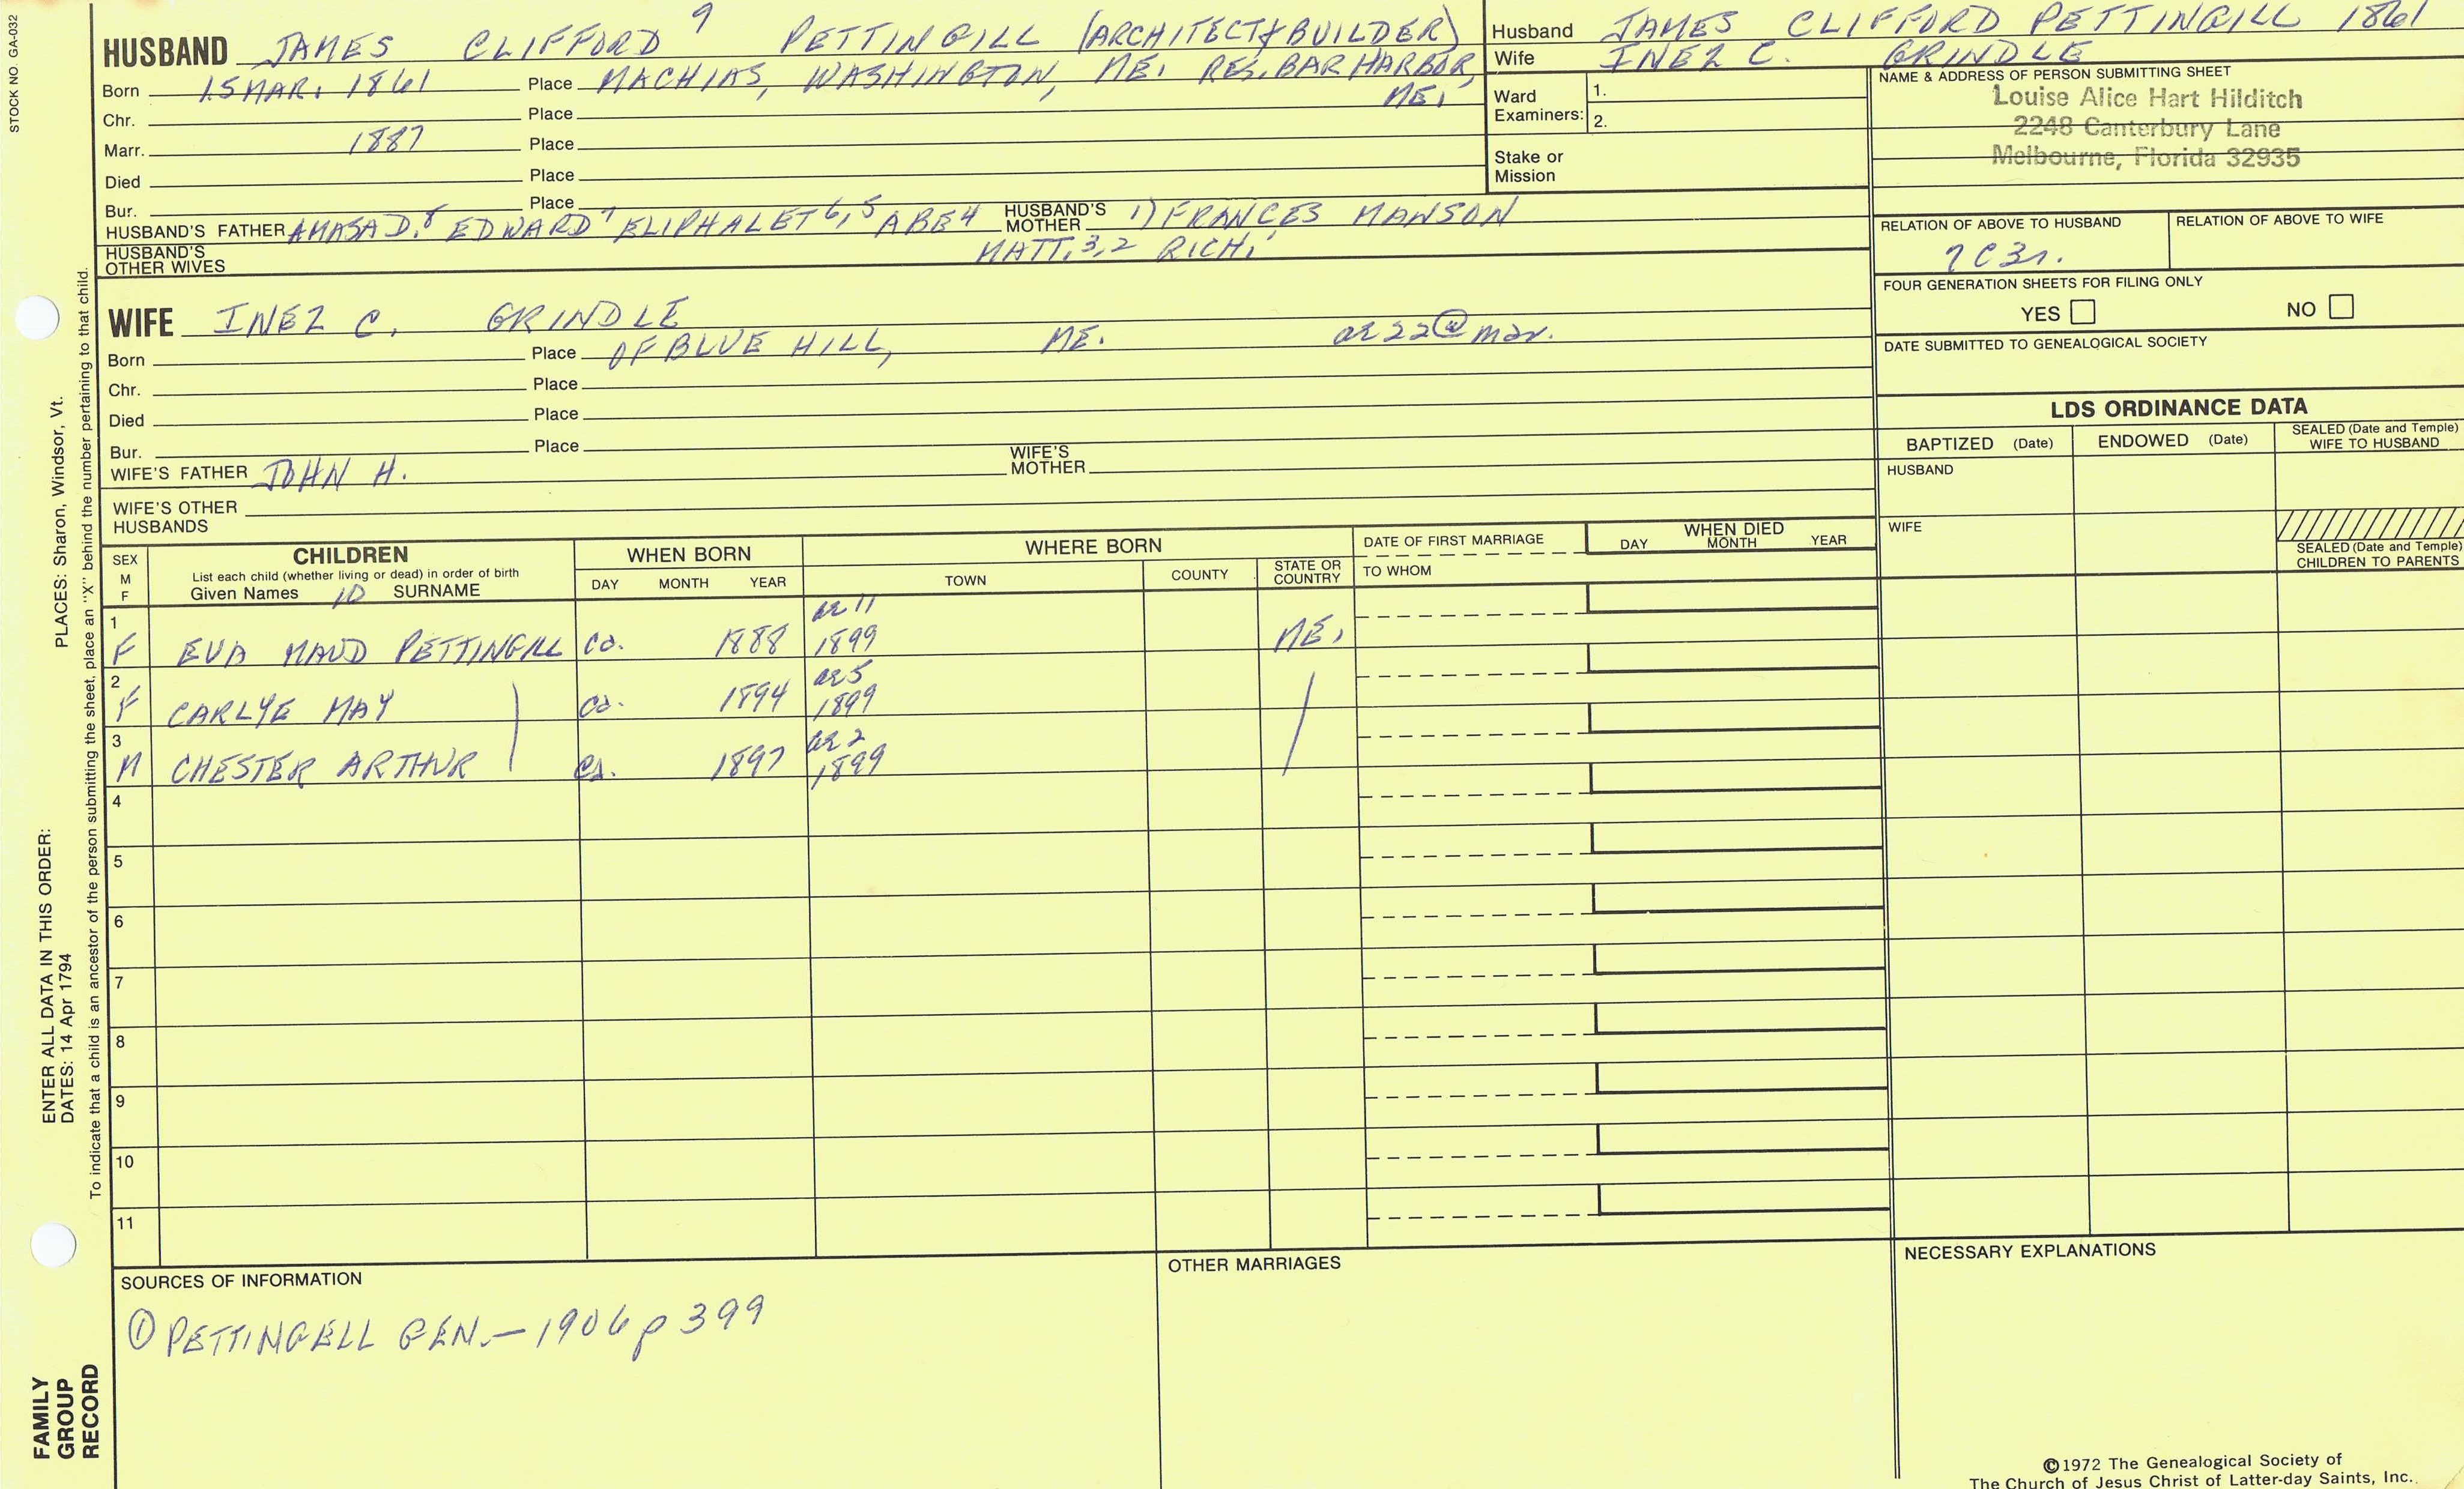 STOCK NO. GA-032
HUSBAND JAMES CLIFFORD 9 PETTINGILL (ARCHITECT & BUILDER)
Born 15 MAR. 1861 Place MACHIAS, WASHINGTON, ME. RES. BAR HARBOR, ME.
Chr. Place
Marr. 1887 Place
Died Place
Bur. Place
HUSBAND'S FATHER AMASA D.8 EDWARD7 ELIPHALET6,5 ABE4 HUSBAND'S MOTHER 1) FRANCES MANSON
MATT.3,2 RICH.1
HUSBAND'S OTHER WIVES
Husband JAMES CLIFFORD PETTINGILL 1861
Wife INEZ C. GRINDLE
Ward Examiners: 1.
2.
Stake or Mission
NAME & ADDRESS OF PERSON SUBMITTING SHEET
Louise Alice Hart Hilditch
2248 Canterbury Lane
Melbourne, Florida 32935
RELATION OF ABOVE TO HUSBAND RELATION OF ABOVE TO WIFE
7C3r.
FOUR GENERATION SHEETS FOR FILING ONLY
YES NO
DATE SUBMITTED TO GENEALOGICAL SOCIETY
WIFE INEZ C. GRINDLE
Born Place OF BLUE HILL, ME. ae 22 @ mar.
Chr. Place
Died Place
Bur. Place
WIFE'S FATHER JOHN H. WIFE'S MOTHER
WIFE'S OTHER HUSBANDS
LDS ORDINANCE DATA
BAPTIZED (Date) ENDOWED (Date) SEALED (Date and Temple) WIFE TO HUSBAND
HUSBAND
WIFE
SEALED (Date and Temple) CHILDREN TO PARENTS
SEX M F CHILDREN WHEN BORN WHERE BORN DATE OF FIRST MARRIAGE WHEN DIED
List each child (whether living or dead) in order of birth
Given Names 10 SURNAME DAY MONTH YEAR TOWN COUNTY STATE OR COUNTRY TO WHOM DAY MONTH YEAR
1 F EVA MAUD PETTINGILL ca. 1888 ae 11 1899 ME.
2 F CARLYE MAY ca. 1894 ae 5 1899
3 M CHESTER ARTHUR ca. 1897 ae 2 1899
4
5
6
7
8
9
10
11
SOURCES OF INFORMATION OTHER MARRIAGES NECESSARY EXPLANATIONS
① PETTINGELL GEN. - 1906 p 399
ENTER ALL DATA IN THIS ORDER:
DATES: 14 Apr 1794
PLACES: Sharon, Windsor, Vt.
To indicate that a child is an ancestor of the person submitting the sheet, place an "X" behind the number pertaining to that child.
FAMILY
GROUP
RECORD
©1972 The Genealogical Society of
The Church of Jesus Christ of Latter-day Saints, Inc.